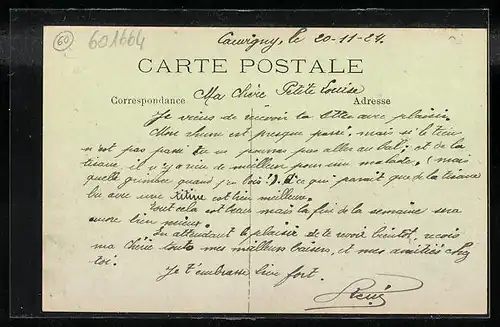 60
601664
Cauvigny, le 20-11-24.
CARTE POSTALE
Correspondance
Adresse
Ma Chère Petite Louise
Je viens de recevoir ta lettre avec plaisir.
Mon rhume est presque passé, mais si le tien
n'est pas passé tu ne pourras pas aller au bal, et de la
tisane il n'y a rien de meilleur pour un malade. (mais
quelle grimace quand j'en bois!). Et ce qui parait que de la tisane
bu avec une est bien meilleure.
Tout cela est beau mais la fin de la semaine sera
encore bien mieux.
En attendant le plaisir de te revoir bientôt, reçois
ma chérie toute mes meilleurs baisers, et mes amitiés chez
toi.
Je t'embrasse bien fort.